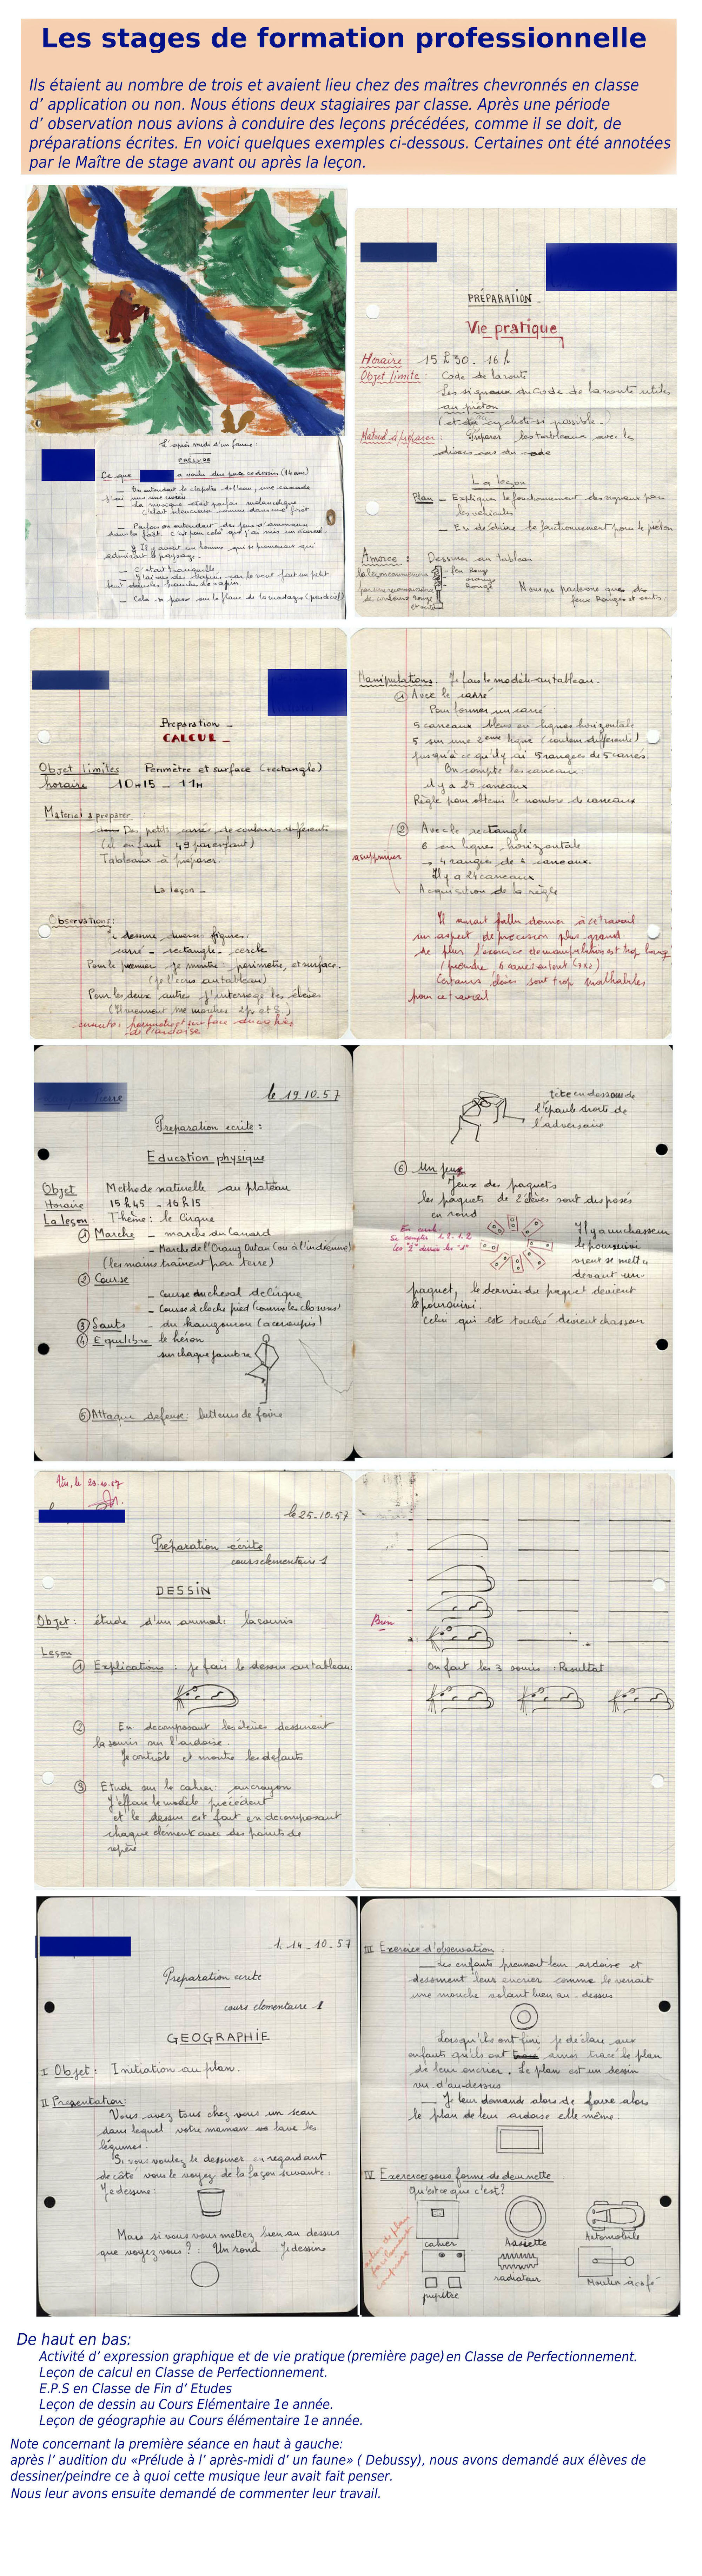 Les stages de formation professionnelle
Ils étaient au nombre de trois et avaient lieu chez des maîtres chevronnés en classe
d’ application ou non. Nous étions deux stagiaires par classe. Après une période
d’ observation nous avions à conduire des leçons précédées, comme il se doit, de
préparations écrites. En voici quelques exemples ci-dessous. Certaines ont été annotées
par le Maître de stage avant ou après la leçon.
L'après midi d'un faune.
PRELUDE
Ce que a voulu dessin (14 ans)
On entendait le clapotis de l'eau, une cascade
La musique était parfois mélancolique
C'était silencieux comme dans une forêt
Parfois on entendait des pas d'animaux
dans la forêt. c'est pour cela que j'ai mis un écureuil.
Il y avait un homme qui se promenait qui
admirait le paysage.
C'était tranquille
Cela se passe sur le flanc de la montagne
PRÉPARATION -
Vie pratique
Horaire 15 h 30 - 16 h
Objet limité : Code de la route
Les signaux du Code de la route utiles
au piéton
(et du cycliste si possible -
Matériel à préparer : Préparer les tableaux avec les
divers cas du code
La leçon
Plan - Expliquer le fonctionnement des signaux pour
les véhicules
- En déduire le fonctionnement pour le piéton
Amorce : Dessiner au tableau
feu Rouge
orange
Rouge
Nous ne parlerons que des
feux Rouges et verts.
Preparation -
CALCUL -
Objet limites Perimètre et surface (rectangle)
horaire 10H15 - 11H
Materiel à preparer :
Des petits carrés de couleurs différentes
(il en faut 49 par enfant)
Tableaux à préparer.
La leçon -
Observations :
Je dessine diverses figures:
carré - rectangle - cercle
Pour le premier je montre périmètre, et surface.
(Je l'écris au tableau)
Pour les deux autres j'interroge les élèves
(Ils viennent me montrer 2p et S.)
de l'ardoise
Manipulations. Je fais le modèle au tableau.
① Avec le carré
Pour former un carré
5 carreaux bleus en lignes horizontale
5 sur une 2eme ligne (couleur différente)
jusqu'à ce qu'il y ai 5 rangées de 5 carrés.
On compte les carreaux
il y a 25 carreaux
Règle pour obtenir le nombre de carreaux
② Avec le rectangle
6 en lignes horizontale
→ 4 rangées de 6 carreaux.
Il y a 24 carreaux
Acquisition de la règle
a supprimer
Il aurait fallu donner à ce travail
un aspect de précision plus grand.
de plus l'exercice de manipulation est trop long
Certains élèves sont trop malhabiles
pour ce travail
le 19.10.57
Preparation ecrite :
Education physique
Objet Methode naturelle au plateau
Horaire 15 h 45 - 16 h 15
La leçon Thème : le Cirque
① Marche - marche du canard
- Marche de l'Orang Outan (ou à l'indienne)
(les mains trainent par terre)
② Course
- Course du cheval de Cirque
- Course à cloche pied (comme les clowns)
③ Sauts - du kangourou (accroupis)
④ Equilibre le héron
sur chaque jambre
⑤ Attaque defense : lutteurs de foire
tête en dessous de
l'épaule droite de
l'adversaire
⑥ Un jeux
Jeux des paquets
les paquets de 2 élèves sont disposés
en rond
Il y a un chasseur
le poursuivi
vient se mettre
devant un
paquet, le dernier du paquet devient
le poursuivi.
Celui qui est touché devient chasseur
Vu, le
le 25-10-57
Préparation écrite
cours elementaire 1
DESSIN
Objet : étude d'un animal: la souris
Leçon
① Explications : je fais le dessin au tableau
② En decomposant les élèves dessinent
la souris sur l'ardoise.
Je contrôle et montre les défauts
③ Etude sur le cahier: au crayon
J'efface le modèle précédent
et le dessin est fait en decomposant
chaque élément avec des points de
repère
Bien
- On fait les 3 souris : Résultat
14-10-57
Préparation ecrite
cours elementaire 1
GEOGRAPHIE
I Objet : Initiation au plan.
II Presentation:
Vous avez tous chez vous un seau
dans lequel votre maman lave les
légumes.
Si vous voulez le dessiner en regardant
de côté vous le voyez de la façon suivante :
Je dessine :
Mais si vous vous mettez bien au dessus
que voyez vous ? : Un rond Je dessine
III Exercice d'observation :
Les enfants prennent leur ardoise et
dessinent leur encrier comme le verrait
une mouche volant bien au-dessus
Lorsqu'ils ont fini je déclare aux
enfants qu'ils ont ainsi tracé le plan
de leur encrier. Le plan est un dessin
vu d'au-dessus
- Je leur demande alors de faire alors
le plan de leur ardoise elle même :
IV Exercices sous forme de devinette
Qu'est ce que c'est ?
cahier
Assiette
Automobile
pupitre
radiateur
Moulin à café
De haut en bas:
Activité d’ expression graphique et de vie pratique (première page) en Classe de Perfectionnement.
Leçon de calcul en Classe de Perfectionnement.
E.P.S en Classe de Fin d’ Etudes
Leçon de dessin au Cours Elémentaire 1e année.
Leçon de géographie au Cours élémentaire 1e année.
Note concernant la première séance en haut à gauche:
après l’ audition du «Prélude à l’ après-midi d’ un faune» ( Debussy), nous avons demandé aux élèves de
dessiner/peindre ce à quoi cette musique leur avait fait penser.
Nous leur avons ensuite demandé de commenter leur travail.